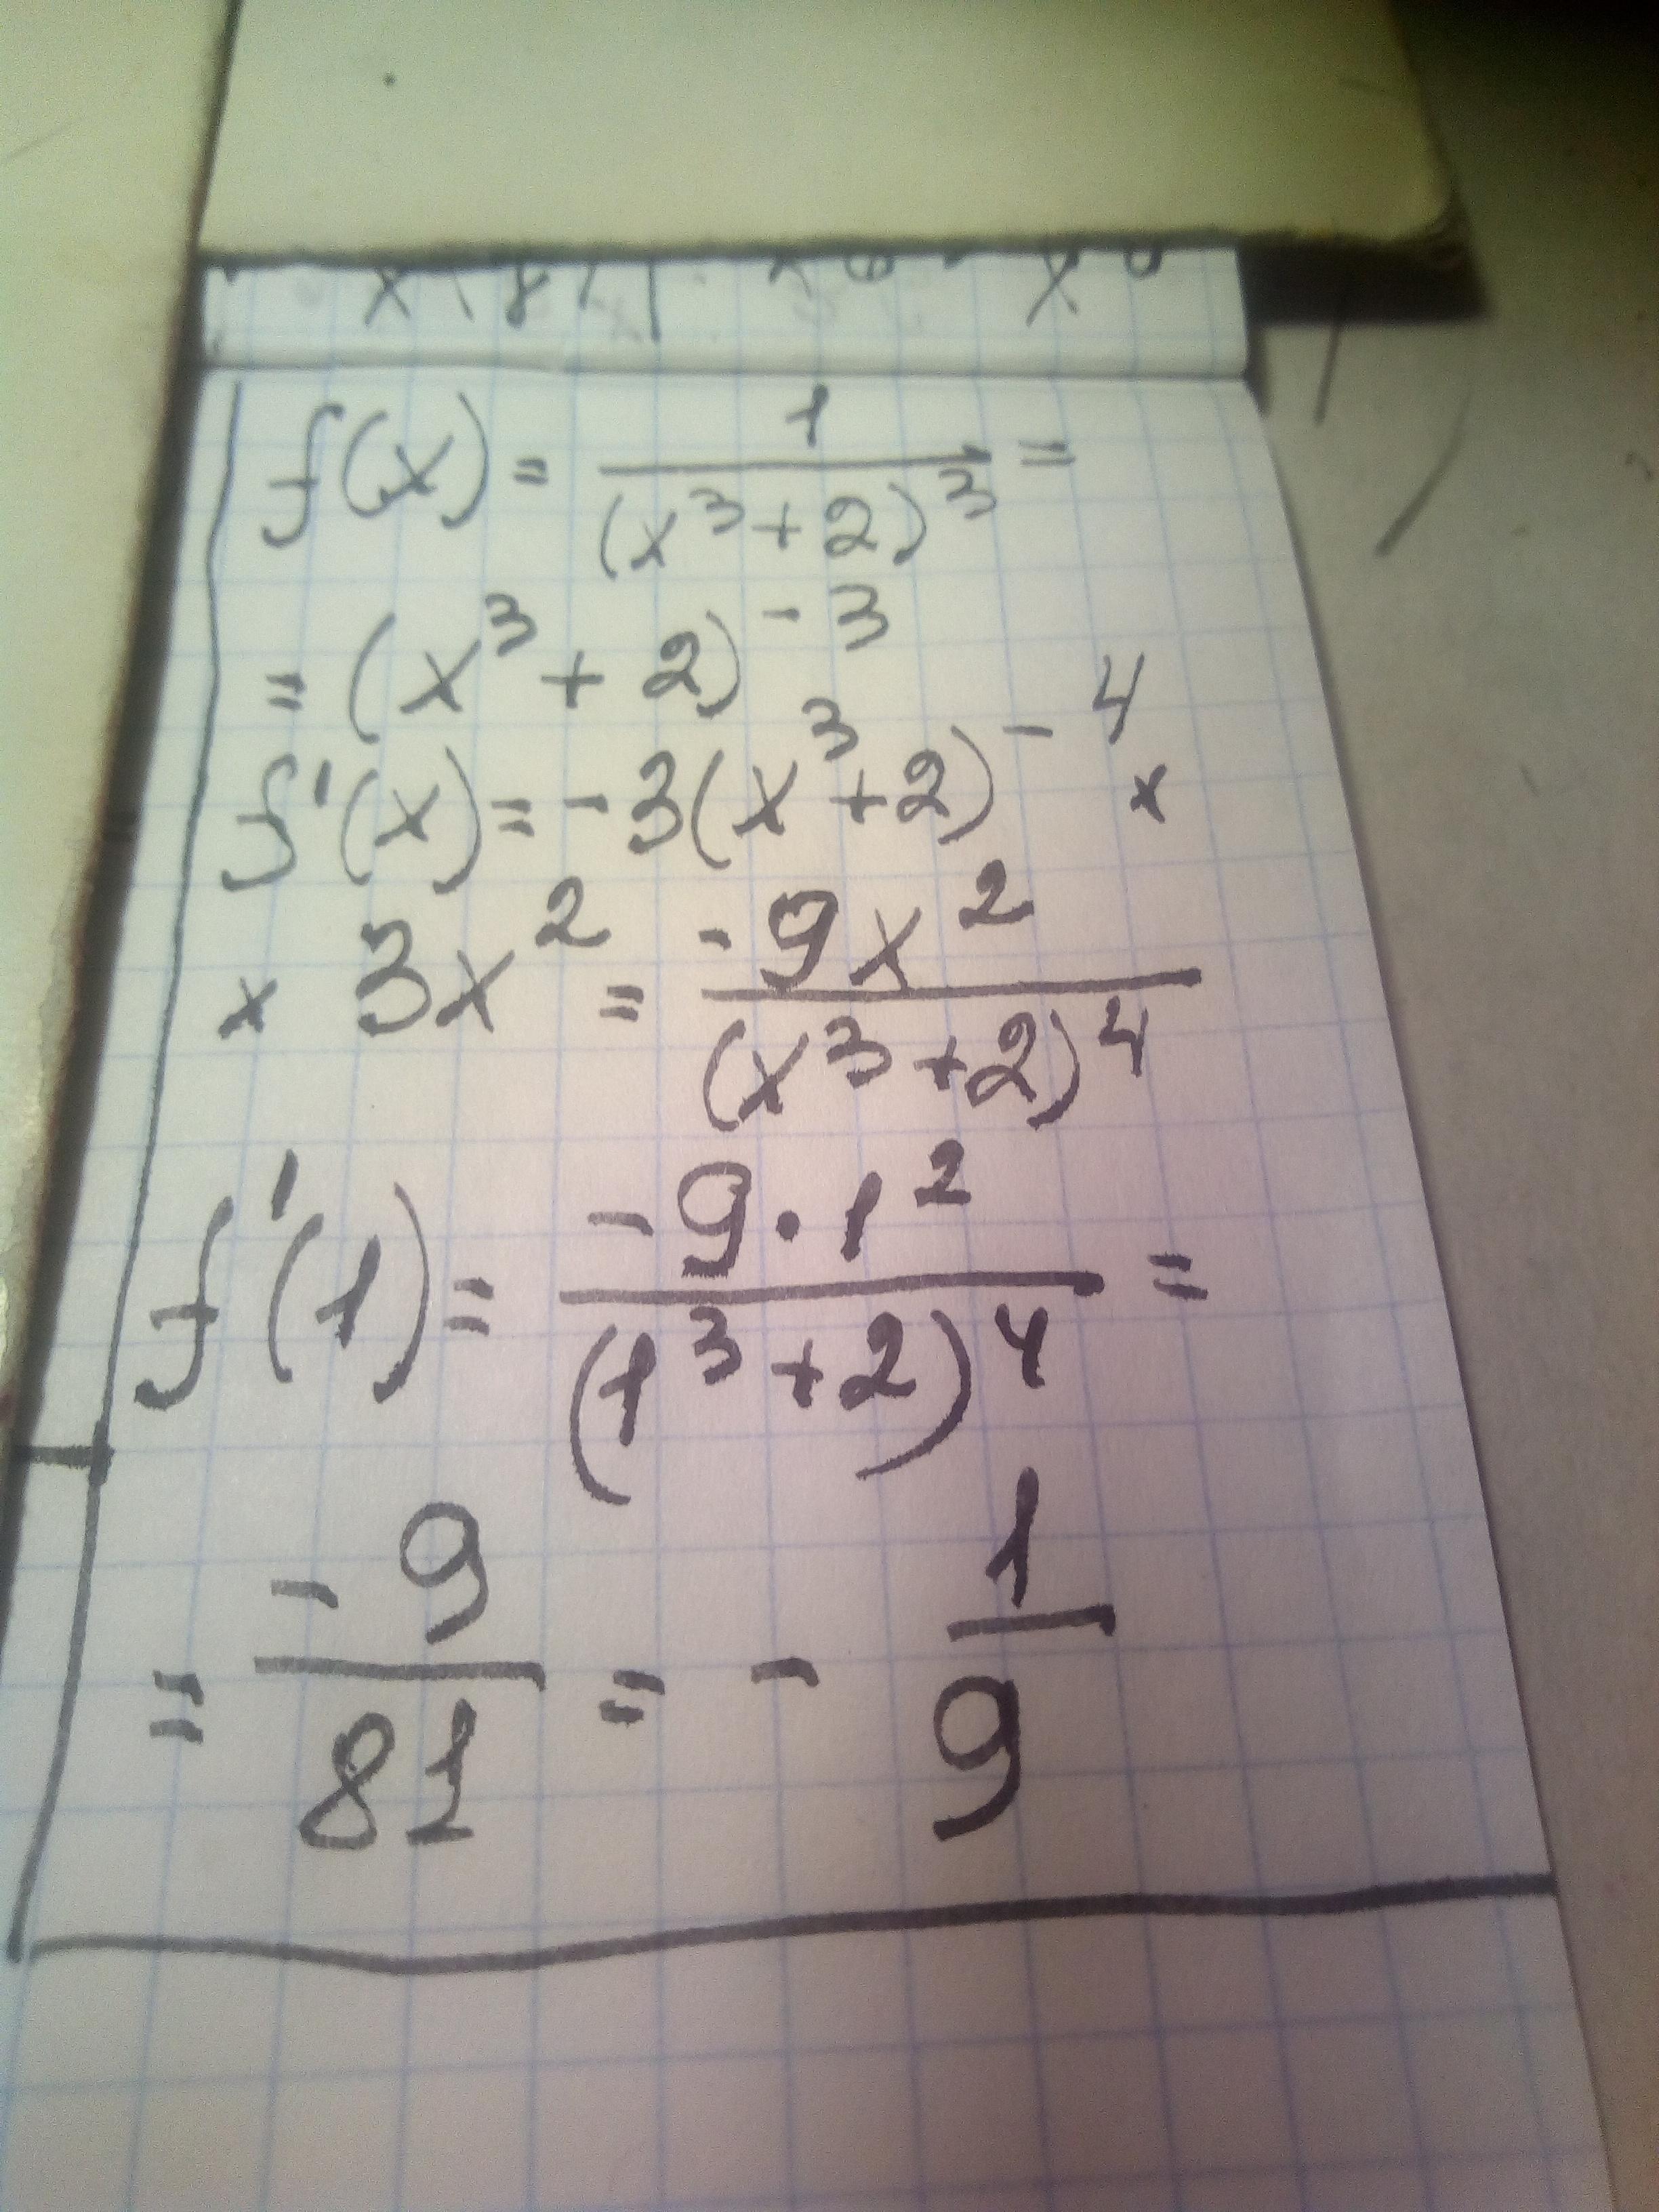 f(x) = 1/(x³+2)³ =
= (x³ + 2)⁻³
f'(x) = -3(x³+2)⁻⁴ ×
× 3x² = -9x²/(x³+2)⁴
f'(1) = -9·1²/(1³+2)⁴ =
= -9/81 = - 1/9